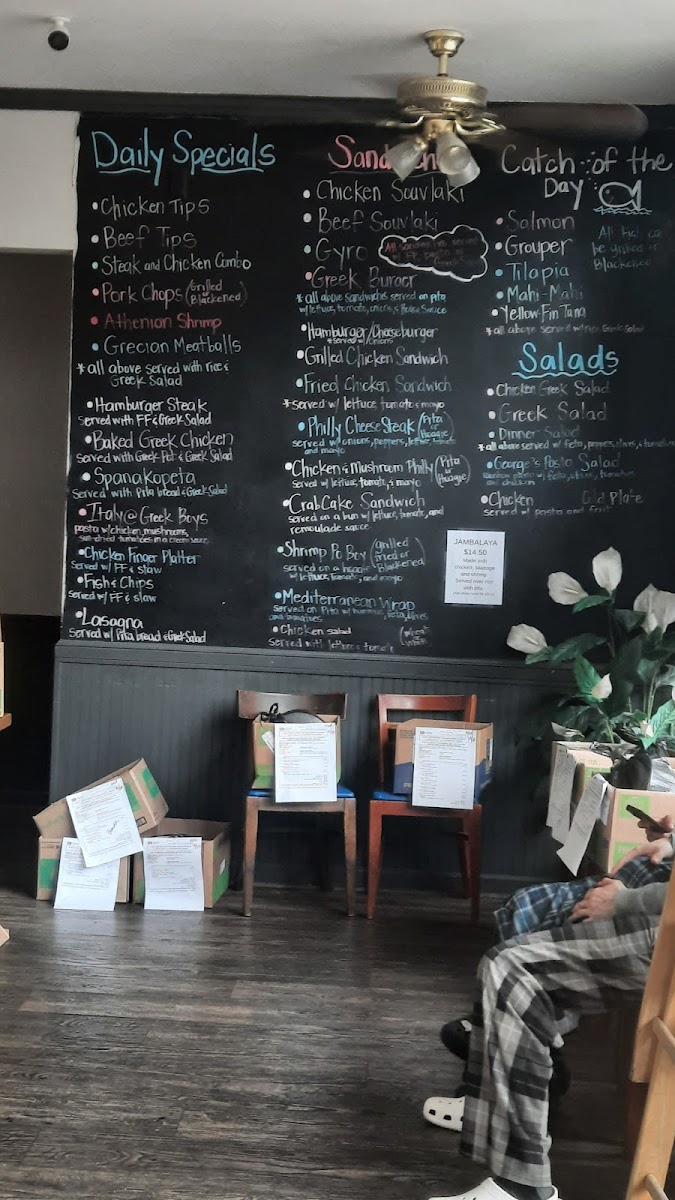 Daily Specials
• Chicken Tips
• Beef Tips
• Steak and Chicken Combo
• Pork Chops (Grilled or Blackened)
• Athenian Shrimp
• Grecian Meatballs
* all above served with rice &
Greek Salad
• Hamburger Steak
served with FF & Greek Salad
• Baked Greek Chicken
served with Greek Pot & Greek Salad
• Spanakopeta
served with Pita bread & Greek Salad
• Italy @ Greek Boys
pasta w/ chicken, mushrooms,
sun-dried tomatoes in a cream sauce
• Chicken Finger Platter
served w/ FF & slaw
• Fish & Chips
served w/ FF & slaw
• Lasagna
served w/ Pita bread & Greek Salad
• Chicken Souvlaki
• Beef Souvlaki
• Gyro
All sandwiches served
• Greek Burger
* all above sandwiches served on pita
w/ lettuce, tomato, onions, & House Sauce
• Hamburger/Cheeseburger
served w/ onions
• Grilled Chicken Sandwich
• Fried Chicken Sandwich
* served w/ lettuce, tomato & mayo
• Philly Cheese Steak (Pita or Hoagie)
served w/ onions, peppers, lettuce, tomato
and mayo
• Chicken & Mushroom Philly (Pita or Hoagie)
served w/ lettuce, tomato, & mayo
• Crab Cake Sandwich
served on a bun w/ lettuce, tomato, and
remoulade sauce
• Shrimp Po Boy (Grilled Fried or Blackened)
served on a hoagie
w/ lettuce, tomato, and mayo
• Mediterranean Wrap
served on Pita w/ hummus, feta, olives
and tomatoes
• Chicken salad
served with lettuce & tomato
Catch of the
Day
• Salmon
• Grouper
• Tilapia
• Mahi-Mahi
• Yellow-Fin Tuna
* all above served w/ rice Greek Salad
All fish can
be grilled or
Blackened
Salads
• Chicken Greek Salad
• Greek Salad
• Dinner Salad
* all above served w/ feta, peppers, olives, & tomatoes
• George's Pasta Salad
• Chicken Cold Plate
served w/ pasta and fruit
JAMBALAYA
$14.50
Made with
chicken, sausage
and shrimp
Served over rice
with pita